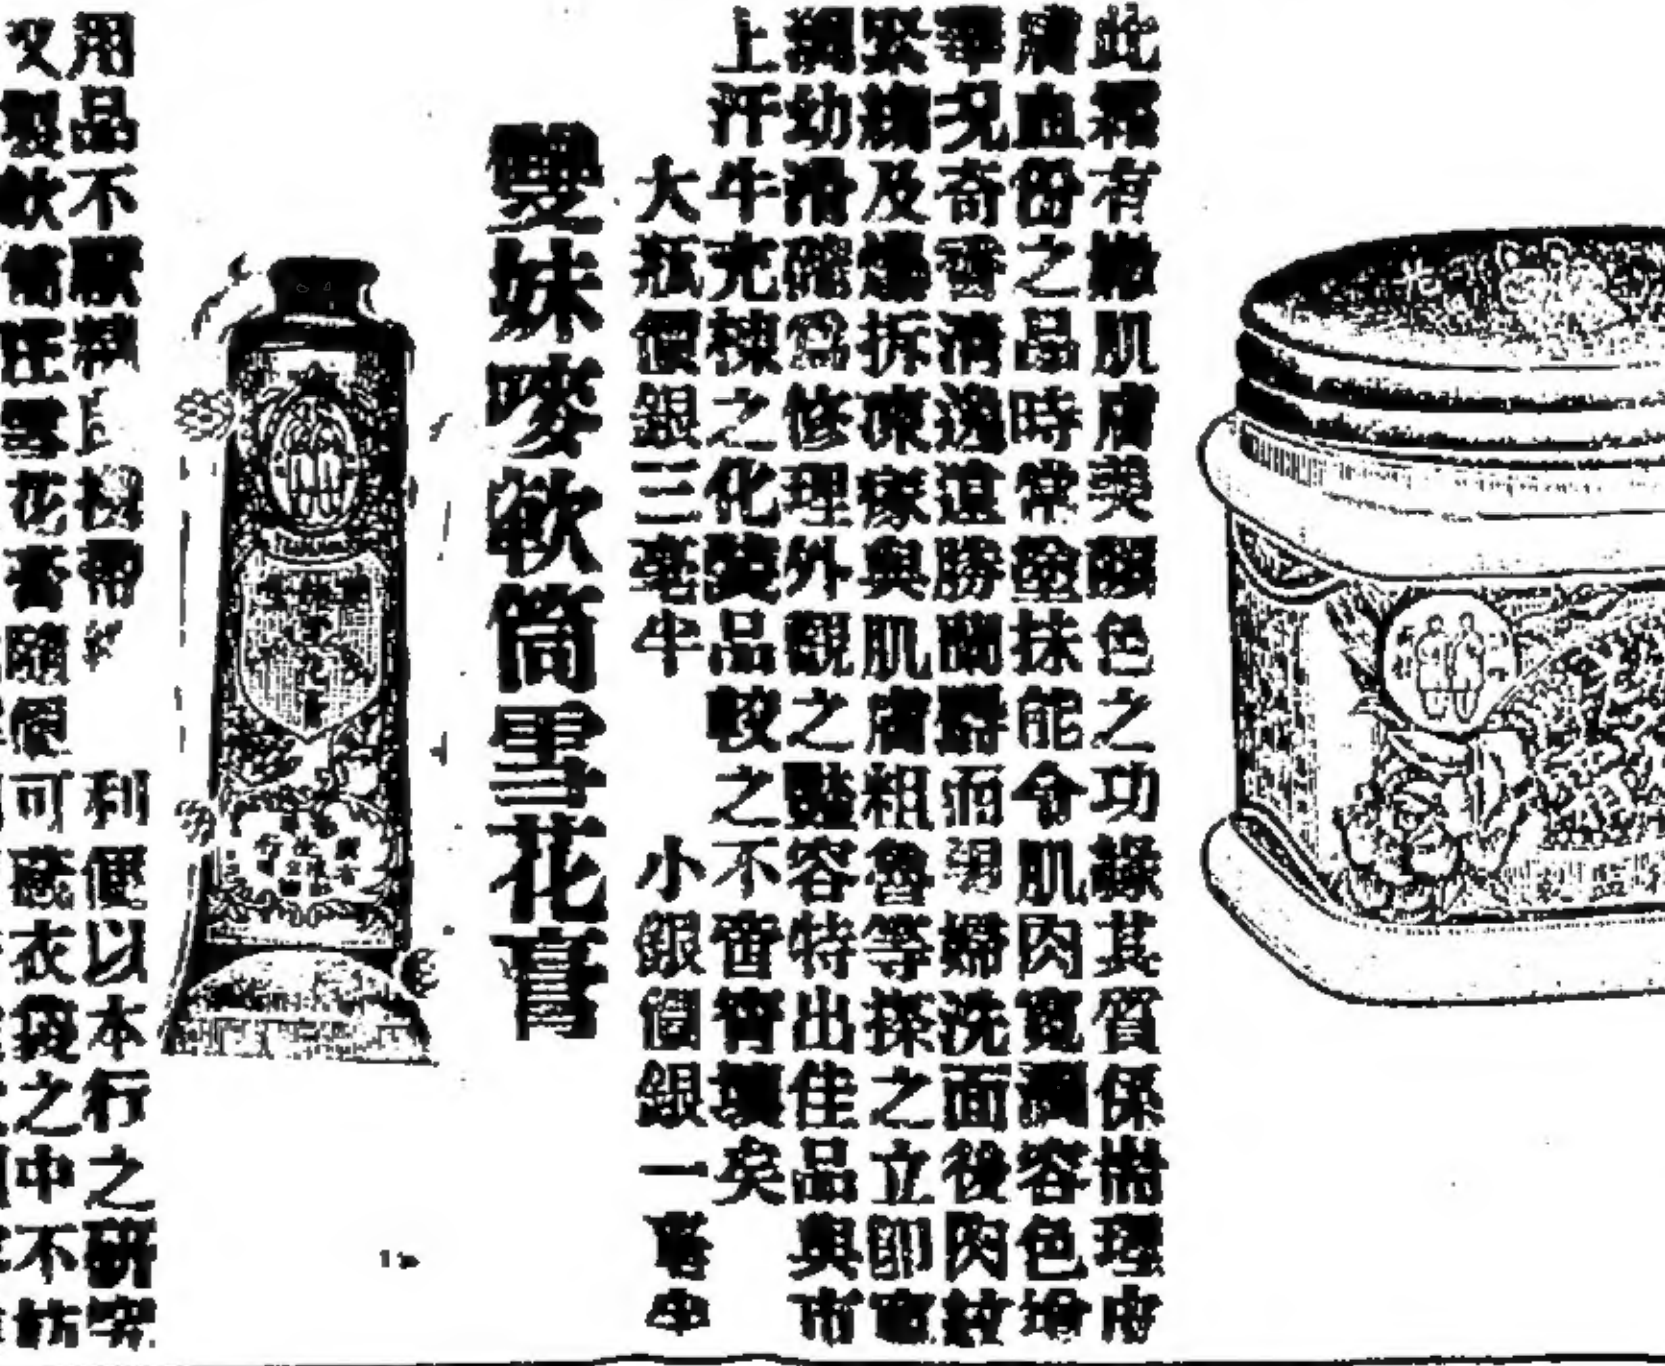 此霜有嫩肌膚美顏色之功緣其質係滋理皮
膚血份之品時常塗抹能令肌肉寬潤容色增
華况奇香清逸遠勝蘭麝而男婦洗面後肉紋
緊縐及爆拆凍瘃與肌膚粗魯等搽之立即寬
潤幼滑確為修理外觀之豔容特出佳品與市
上汗牛充棟之化裝品較之不啻霄壤矣
大瓶價銀三毫半 小銀價銀一毫半
雙妹嘜軟筒雪花膏
用品不厭精 利便以本行之研究
又製軟筒庄雪花膏隨便可藏衣袋之中不妨